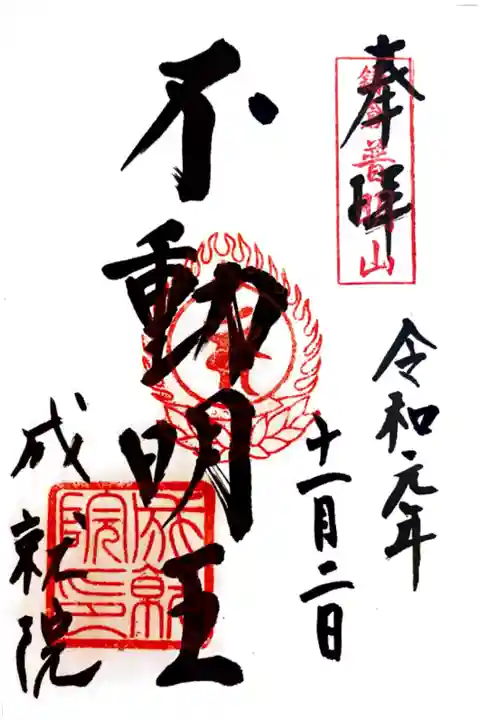 奉拝
鎌倉普明山
令和元年
十一月二日
不動明王
成就院
成就院印